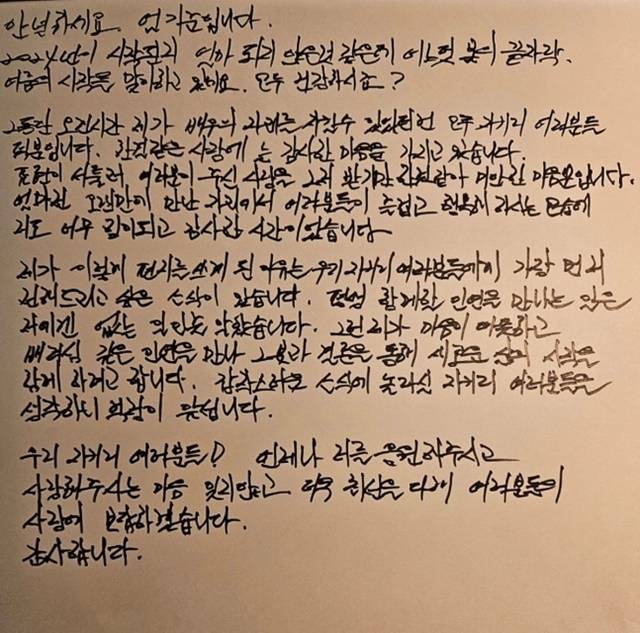 안녕하세요. 엄기준입니다.
2024년이 시작된지 얼마 되지 않은것 같은데 어느덧 봄의 끝자락.
여름의 시작을 맞이하고 있네요. 모두 건강하시죠?
그동안 오랜시간 제가 배우의 자리를 지킬수 있었던건 모두 자기리 여러분들
덕분입니다. 한결같은 사랑에 늘 감사한 마음을 가지고 있습니다.
표현이 서툴러 여러분이 주신 사랑을 그저 받기만 한것같아 미안한 마음뿐입니다.
얼마전 오랜만에 만난 자리에서 여러분들이 즐겁고 행복해 하시는 모습에
저도 너무 힘이되고 감사한 시간이었습니다
제가 이렇게 편지를 쓰게 된 이유는 우리 자기리 여러분들에게 가장 먼저
전해드리고 싶은 소식이 있습니다. 평생 함께할 인연을 만나는 일은
저에겐 없는 일인줄 알았습니다. 그런 제가 마음이 따뜻하고
배려심 깊은 인연을 만나 그분과 결혼을 통해 새로운 삶의 시작을
함께 하려고 합니다. 갑작스러운 소식에 놀라실 자기리 여러분들을
생각하니 희람이 됩니다.
우리 자기리 여러분들! 언제나 저를 응원해주시고
사랑해주시는 마음 잊지않고 더욱 최선을 다해 여러분들의
사랑에 보답하겠습니다.
감사합니다.